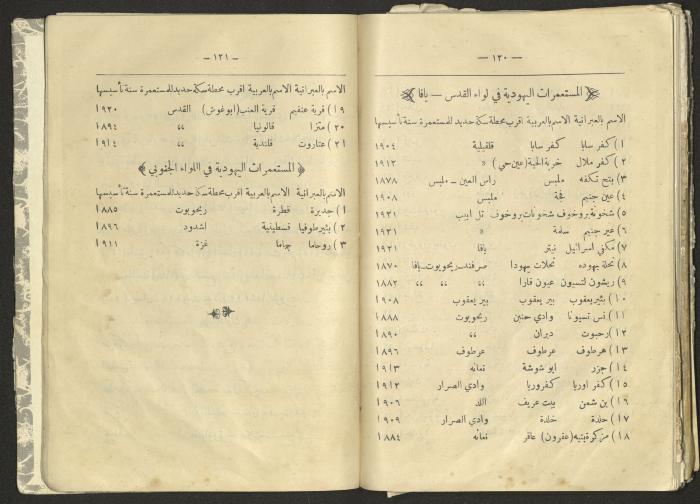 — ١٢٠ —
المستعمرات اليهودية في لواء القدس — يافا
الاسم بالعبرانية الاسم بالعربية اقرب محطة سكة حديد للمستعمرة سنة تأسيسها
١) كفر سابا كفر سابا قلقيلية ١٩٠٤
٢) كفر ملال خربة الحية (عين حي) « ١٩١٢
٣) بتح تكفه ملبس راس العين — ملبس ١٨٧٨
٤) عين جنيم فجة ملبس ١٩٠٨
٥) شخونة بروخوف شخونات بروخوف تل ابيب ١٩٢١
٦) عير جنيم سلمة « ١٩٢١
٧) مكفي اسرائيل نيتر يافا ١٩٢١
٨) نحلة يهوده نحلات يهودا صرفند ــ ريحوبوت ــ يافا ١٨٧٠
٩) ريشون لتسيون عيون قارا ,, ,, ,, ١٨٨٢
١٠) بئير يعقوب بير يعقوب بير يعقوب ١٩٠٨
١١) نس تسيونا وادي حنين ريحوبوت ١٨٨٨
١٢) رحبوت ديران ,, ١٨٩٠
١٣) هرطوف عرطوف عرطوف ١٨٩٦
١٤) جزر ابو شوشة نعانه ١٩١٣
١٥) كفر اوريا كفروريا وادي الصرار ١٩١٢
١٦) بن شمن بيت عريف اللد ١٩٠٦
١٧) حلدة خلدة وادي الصرار ١٩٠٩
١٨) مزكرة بتيه (عقرون) عاقر نعانه ١٨٨٤
— ١٢١ —
الاسم بالعبرانية الاسم بالعربية اقرب محطة سكة حديد للمستعمرة سنة تأسيسها
١٩) قرية عنفيم قرية العنب (ابو غوش) القدس ١٩٢٠
٢٠) متزا قالونيا ,, ١٨٩٤
٢١) عتاروت قلندية ,, ١٩١٤
المستعمرات اليهودية في اللواء الجنوبي
الاسم بالعبرانية الاسم بالعربية اقرب محطة سكة حديد للمستعمرة سنة تأسيسها
١) جديرة قطرة ريحوبوت ١٨٨٥
٢) بئير طوفيا قسطينية اشدود ١٨٩٦
٣) روحاما غزة ١٩١١